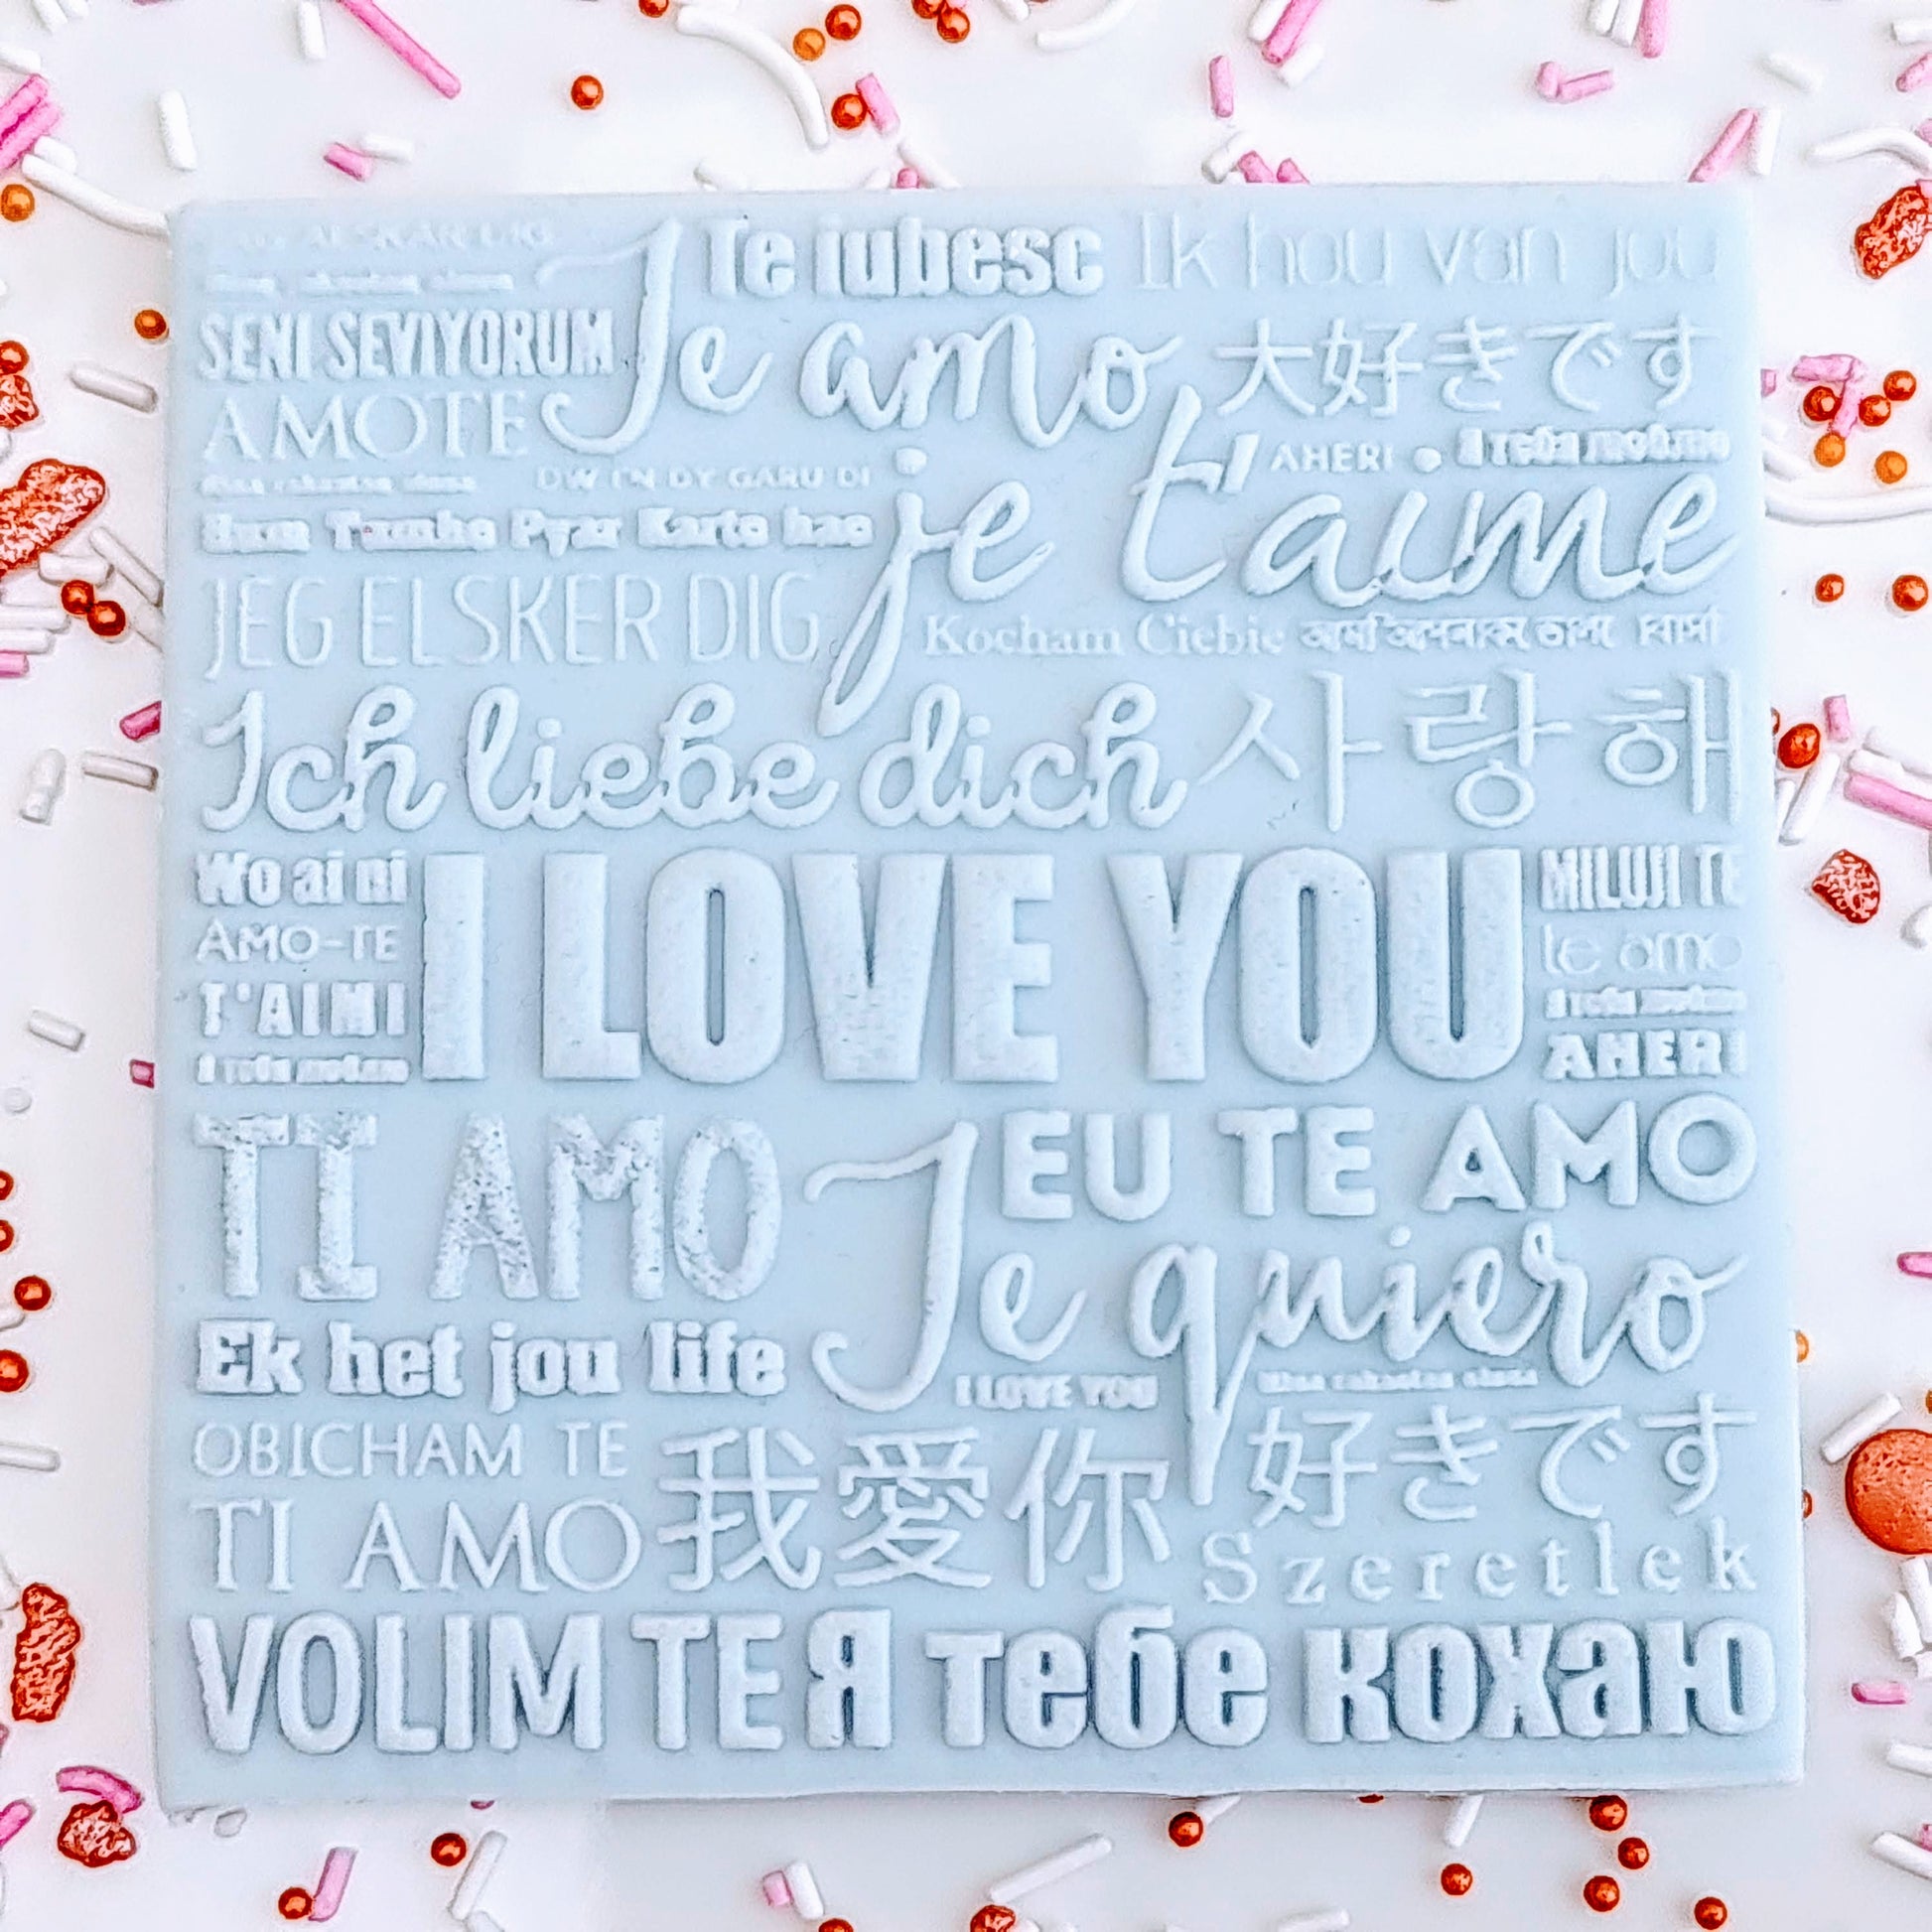 ALSKAR DIG
Te iubesc
Ik hou van jou
SENI SEVIYORUM
Te amo
大好きです
AMOTE
AHERI •
DW I'N DY GARU DI
je t'aime
Hum Tumhe Pyar Karte hae
JEG ELSKER DIG
Kocham Ciebie
Ich liebe dich
사랑해
Wo ai ni
I LOVE YOU
MILUJI TE
AMO-TE
te amo
T'AIMI
AHERI
TI AMO
EU TE AMO
Te quiero
Ek het jou life
I LOVE YOU
OBICHAM TE
我愛你
好きです
TI AMO
Szeretlek
VOLIM TE
Я тебе кохаю